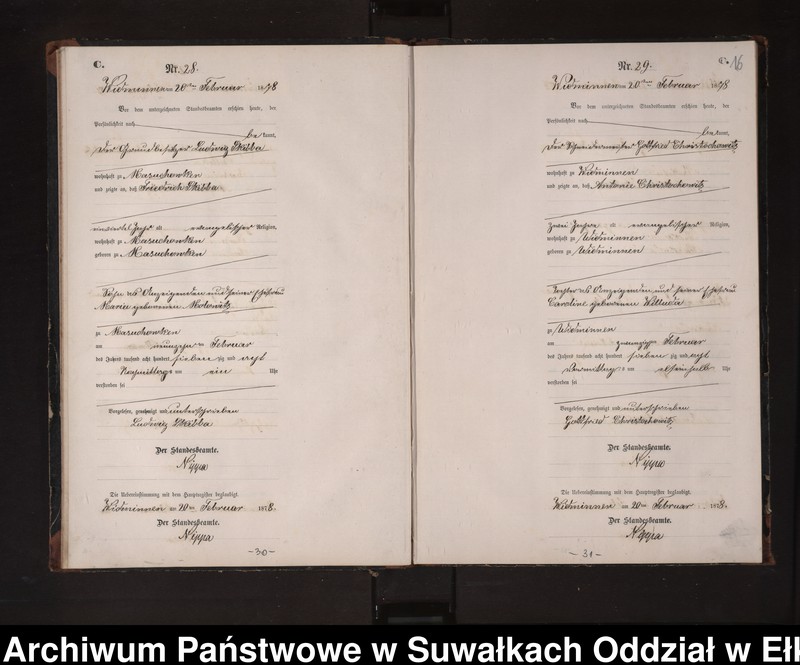 C.
Nr. 28.
Widminnen am 20ten Februar 1878
Vor dem unterzeichneten Standesbeamten erschien heute, der
Persönlichkeit nach
bekannt,
der Grundbesitzer Ludwig Skibba
wohnhaft zu Masuchowken
und zeigte an, daß Friedrich Skibba
Jahr alt evangelischer Religion,
wohnhaft zu Masuchowken
geboren zu Masuchowken
Sohn des Anzeigenden und seiner Ehefrau
Marie geborenen
zu Masuchowken
am neunzehn ten Februar
des Jahres tausend acht hundert siebenzig und acht
Nachmittags um ein Uhr
verstorben sei
Vorgelesen, genehmigt und unterschrieben
Ludwig Skibba
Der Standesbeamte.
Nippa
Die Uebereinstimmung mit dem Hauptregister beglaubigt.
Widminnen am 20ten Februar 1878.
Der Standesbeamte.
Nippa
-30-
C. 16
Nr. 29.
Widminnen am 20ten Februar 1878
Vor dem unterzeichneten Standesbeamten erschien heute, der
Persönlichkeit nach
bekannt,
der Schneidermeister Gottfried Christochowitz
wohnhaft zu Widminnen
und zeigte an, daß Antonie Christochowitz
zwei Jahre alt evangelischer Religion,
wohnhaft zu Widminnen
geboren zu Widminnen
Tochter des Anzeigenden und seiner Ehefrau
Caroline geborenen
zu Widminnen
am zwanzigsten Februar
des Jahres tausend acht hundert siebenzig und acht
Vormittags um Uhr
verstorben sei
Vorgelesen, genehmigt und unterschrieben
Gottfried Christochowitz
Der Standesbeamte.
Nippa
Die Uebereinstimmung mit dem Hauptregister beglaubigt.
Widminnen am 20ten Februar 1878.
Der Standesbeamte.
Nippa
-31-
Archiwum Państwowe w Suwałkach Oddział w Ełk